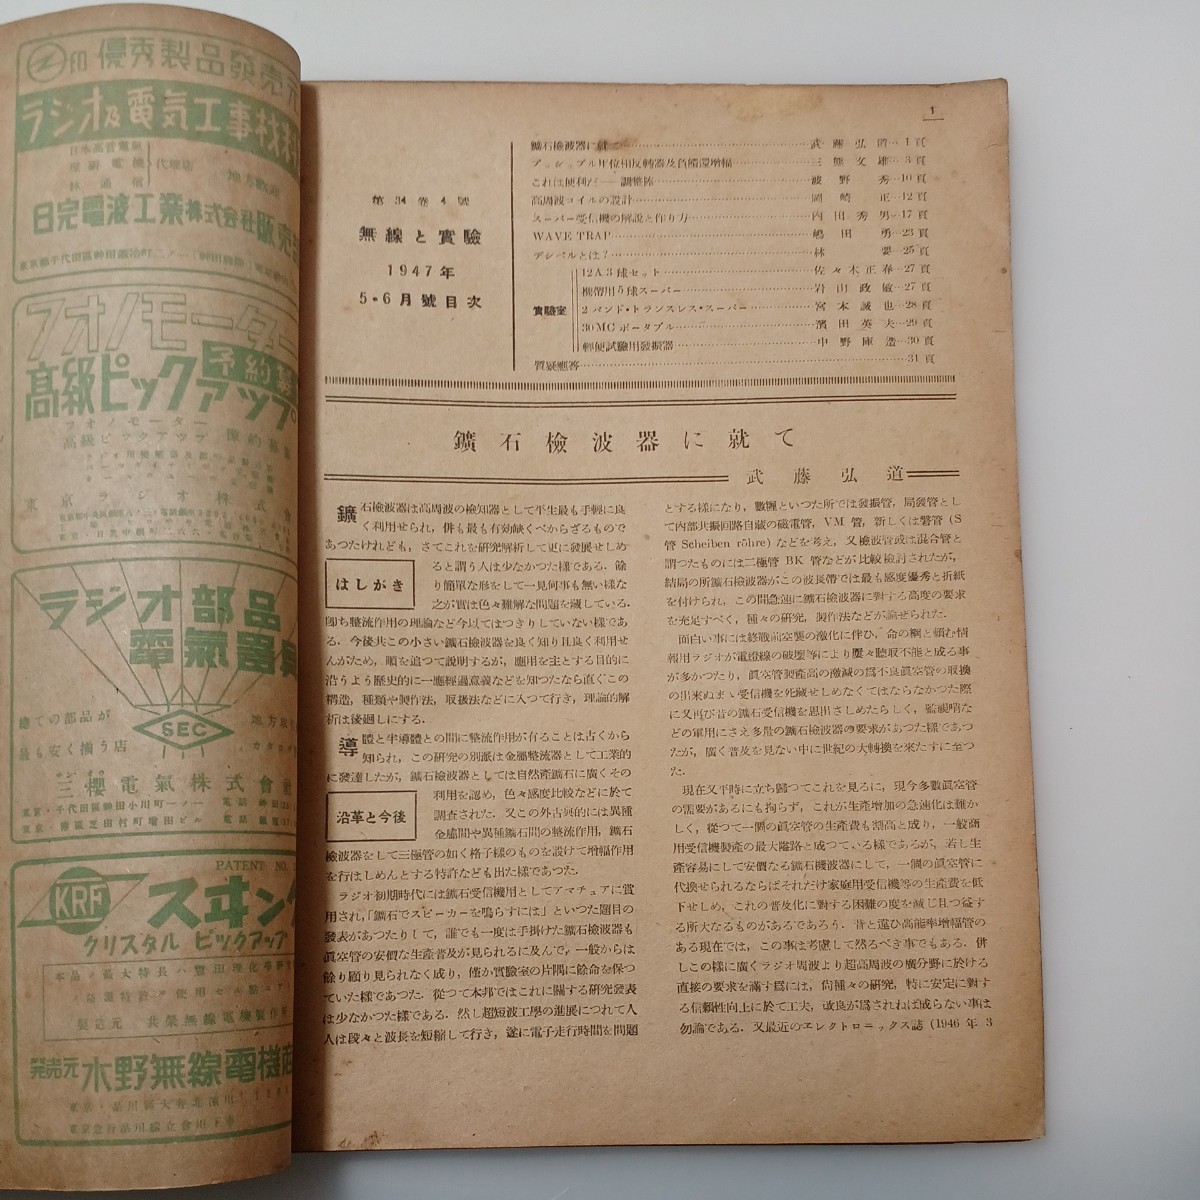 印 優秀製品発売元
ラジオ及電気工事材料
日本高音電氣
代理店
地方歓迎
日完電波工業株式会社販売
フオノモーター
予約募
高級ピックアップ
フオノモーター
高級ピックアップ 予約募集
東京ラジオ株式會
ラジオ部品
電氣器具
SEC
總ての部品が
最も安く揃う店
地方取
カタログ
三櫻電氣株式會社
東京・千代田區神田小川町一ノ一
東京・港區芝田村町増田ビル
PATENT NO.
KRF スヰング
クリスタル ピックアップ
製造元 共榮無線電機製作所
発売元 水野無線電機商
1
第34卷4號
無線と實驗
1947年
5・6月號目次
鑛石檢波器に就て 武藤弘道 1頁
三熊文雄 3頁
これは便利だ――調整棒 波野秀 10頁
高周波コイルの設計 岡崎正 12頁
スーパー受信機の解說と作り方 内田秀男 17頁
WAVE TRAP 嶋田勇 23頁
デシベルとは? 林要 25頁
實驗室
12A3球セット 佐々木正春 27頁
携帶用5球スーパー 岩山政敏 27頁
2バンド・トランスレス・スーパー 宮本誠也 28頁
30MCポータブル 濱田英夫 29頁
輕便試驗用發振器 中野庫造 30頁
質疑應答 31頁
鑛石檢波器に就て
武藤弘道
鑛石檢波器は高周波の檢知器として平生最も手輕に良
く利用せられ，併も最も有効缺くべからざるもので
あつたけれども，さてこれを研究解析して更に發展せしめ
はしがき
ると謂う人は少なかつた樣である．餘
り簡單な形をして一見何事も無い樣な
之が實は色々難解な問題を藏している．
即ち整流作用の理論など今以てはつきりしていない樣であ
る．今後共この小さい鑛石檢波器を良く知り且良く利用せ
んがため，順を追つて說明するが，應用を主とする目的に
沿うよう歷史的に一應經過意義などを知つたなら直ぐこの
構造，種類や製作法，取扱法などに入つて行き，理論的解
析は後廻しにする．
導體と半導體との間に整流作用が有ることは古くから
知られ，この研究の別派は金屬整流器として工業的
に發達したが，鑛石檢波器としては自然產鑛石に廣くその
沿革と今後
利用を認め，色々感度比較などに於て
調査された．又この外古典的には異種
金屬間や異種鑛石間の整流作用，鑛石
檢波器をして三極管の如く格子樣のものを設けて増幅作用
を行はしめんとする特許なども出た樣であつた．
ラジオ初期時代には鑛石受信機用としてアマチュアに賞
用され，「鑛石でスピーカーを鳴らすには」といつた題目の
發表があつたりして，誰でも一度は手掛けた鑛石檢波器も
眞空管の安價な生產普及が見られるに及んで，一般からは
餘り顧り見られなく成り，僅か實驗室の片隅に餘命を保つ
ていた樣であつた．從つて本邦ではこれに關する研究發表
は少なかつた樣である．然し超短波工學の進展につれて人
人は段々と波長を短縮して行き，遂に電子走行時間を問題
とする樣になり，數糎といつた所では發振管，局發管とし
て内部共振回路自藏の磁電管，VM管，新しくは磐管（S
管 Scheiben röhre）などを考え，又檢波管或は混合管と
謂つたものには二極管BK管などが比較檢討されたが，
結局の所鑛石檢波器がこの波長帶では最も感度優秀と折紙
を付けられ，この間急速に鑛石檢波器に對する高度の要求
を充足すべく，種々の研究，製作法などが論ぜられた．
面白い事には終戰前空襲の激化に伴ひ，命の綱と賴む情
報用ラジオが電燈線の破壞等により屢々聽取不能と成る事
が多かつたり，眞空管製產高の激減の爲不良眞空管の取換
の出來ぬまゝ受信機を死藏せしめなくてはならなかつた際
に又再び昔の鑛石受信機を思出さしめたらしく，監視哨な
どの軍用にさえ多量の鑛石檢波器の要求があつた樣であつ
たが，廣く普及を見ない中に世紀の大轉換を來たすに至つ
た．
現在又平時に立ち歸つてこれを見るに，現今多數眞空管
の需要があるにも拘らず，これが生產增加の急速化は難か
しく，從つて一個の眞空管の生產費も割高と成り，一般商
用受信機製產の最大隘路と成つている樣であるが，若し生
產容易にして安價なる鑛石檢波器にして，一個の眞空管に
代換せられるならばそれだけ家庭用受信機等の生產費を低
下せしめ，これの普及化に對する困難の度を減じ且つ益す
る所大なるものがあるであろう．昔と違ひ高能率增幅管の
ある現在では，この事は考慮して然るべき事でもある．併
しこの樣に廣くラジオ周波より超高周波の廣分野に於ける
直接の要求を滿す爲には，尙種々の研究，特に安定に對す
る信賴性向上に於て工夫，改良が爲されねば成らない事は
勿論である．又最近のエレクトロニックス誌（1946年3